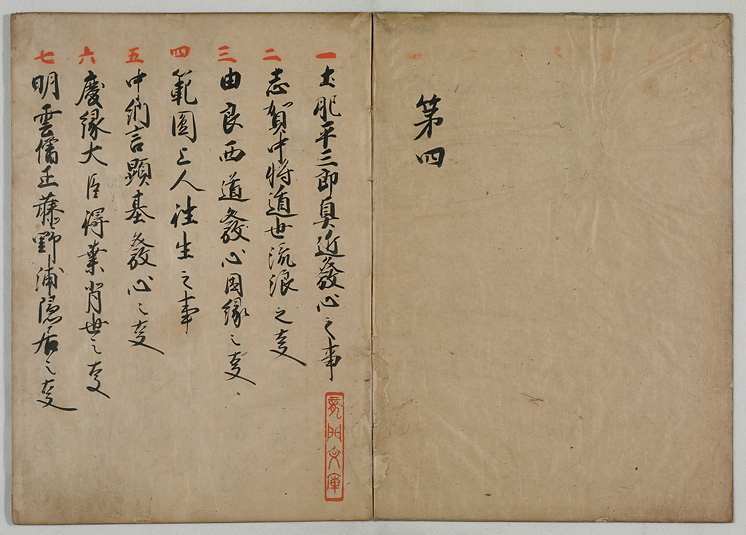 第四
一 土肥平三郎貞近發心之事
二 志賀中将遁世流浪之事
三 由良西道發心因縁之事
四 範圓上人往生之事
五 中納言顕基發心之事
六 慶縁大臣得業背世之事
七 明雲僧正藤野浦隠居之事
龍門文庫